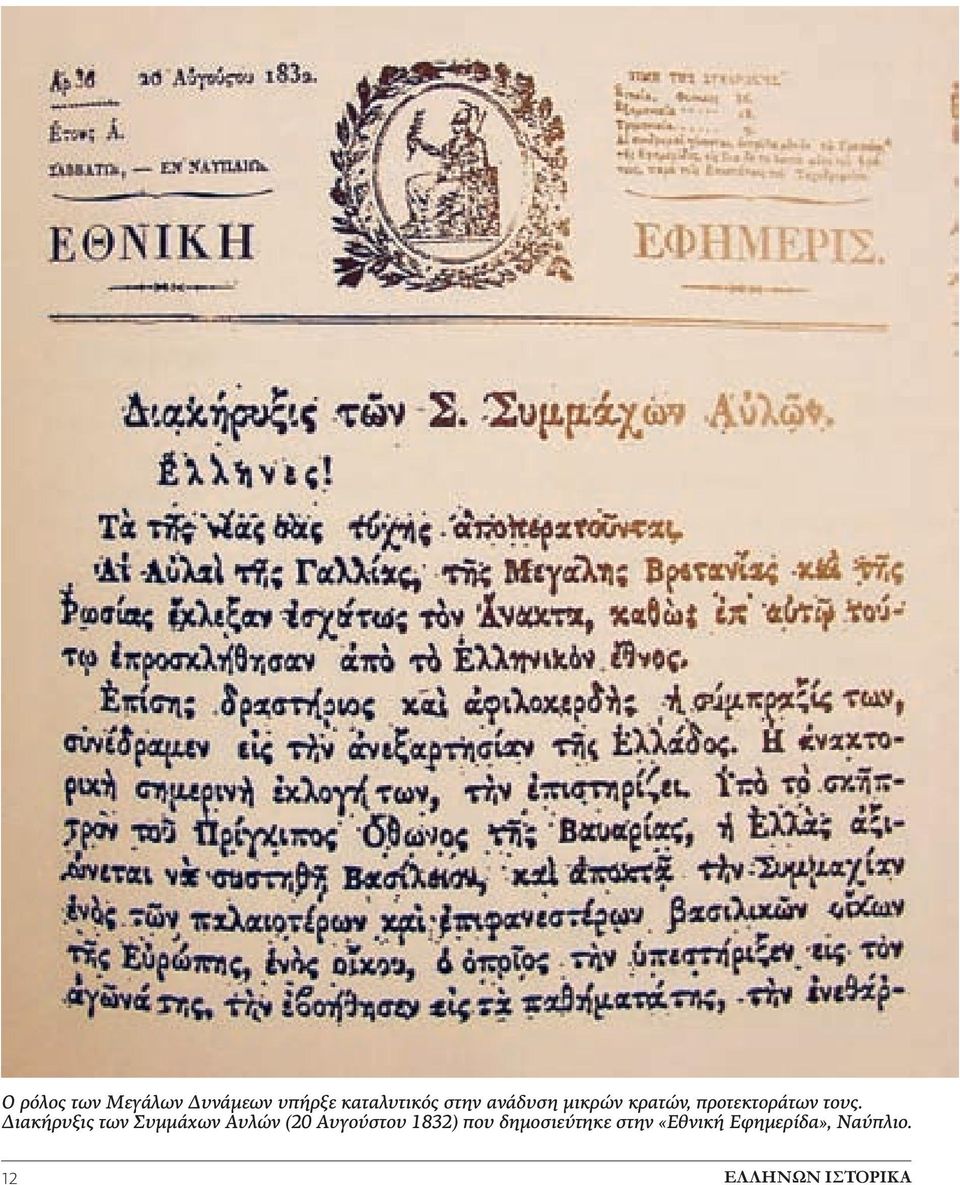 Ἀρ 36 20 Αὐγούςου 1832.
Ἔτους Ά.
ΣΑΒΒΑΤΩ, — ΕΝ ΝΑΥΠΛΙΩ.
ΤΙΜΗ ΤΗΣ ΣΥΝΔΡΟΜΗΣ
ΕΘΝΙΚΗ ΕΦΗΜΕΡΙΣ.
Διακήρυξις τῶν Σ. Συμμάχων Αὐλῶν.
Ἕλληνες!
Τὰ τῆς νέας σας τύχης ἀποπερατοῦνται.
Αἱ Αὐλαὶ τῆς Γαλλίας, τῆς Μεγάλης Βρετανίας καὶ τῆς
Ῥωσίας ἔκλεξαν ἐσχάτως τὸν Ἄνακτα, καθὼς ἐπ' αὐτῷ τού-
τῳ ἐπροσκλήθησαν ἀπὸ τὸ Ἑλληνικὸν ἔθνος.
Ἐπίσης δραστήριος καὶ ἀφιλοκερδὴς ἡ σύμπραξίς των,
συνέδραμεν εἰς τὴν ἀνεξαρτησίαν τῆς Ἑλλάδος. Ἡ ἀνακτο-
ρικὴ σημερινὴ ἐκλογή των, τὴν ἐπιστηρίζει. Ὑπὸ τὸ σκῆπ-
τρον τοῦ Πρίγκιπος Ὄθωνος τῆς Βαυαρίας, ἡ Ἑλλὰς ἀξι-
ώνεται νὰ συστηθῇ Βασίλειον, καὶ ἀποκτᾷ τὴν Συμμαχίαν
ἑνὸς τῶν παλαιοτέρων καὶ ἐπιφανεστέρων βασιλικῶν οἴκων
τῆς Εὐρώπης, ἑνὸς οἴκου, ὁ ὁποῖος τὴν ὑπεστήριξεν εἰς τὸν
ἀγῶνά της, τὴν ἐβοήθησεν εἰς τὰ παθήματά της, τὴν ἐνεθάρ-
Ο ρόλος των Μεγάλων Δυνάμεων υπήρξε καταλυτικός στην ανάδυση μικρών κρατών, προτεκτοράτων τους.
Διακήρυξις των Συμμάχων Αυλών (20 Αυγούστου 1832) που δημοσιεύτηκε στην «Εθνική Εφημερίδα», Ναύπλιο.
12 ΕΛΛΗΝΩΝ ΙΣΤΟΡΙΚΑ